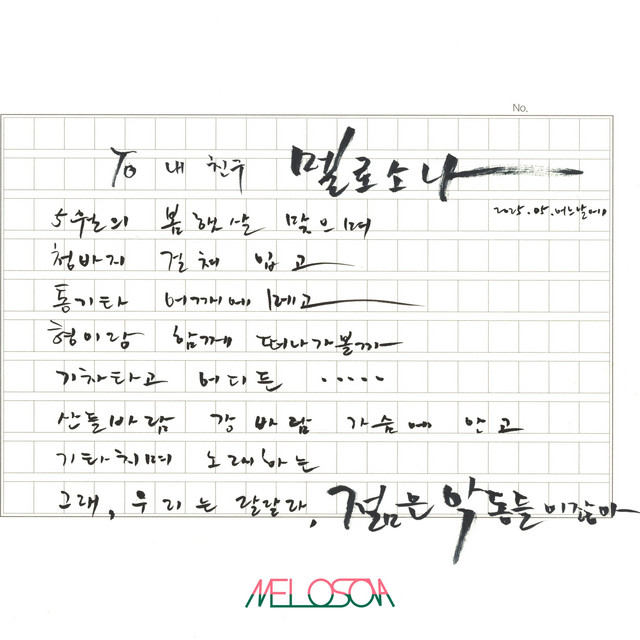 No.
To 내 친구 멜로소나
2025.05.어느날에
5월의 봄햇살 맞으며
청바지 걸쳐 입고
통기타 어깨에 메고
형이랑 함께 떠나가볼까
기차타고 어디든 .....
산들바람 강바람 가슴에 안고
기타치며 노래하는
그래, 우리는 랄랄라, 젊은 악동들이잖아
MELOSONA